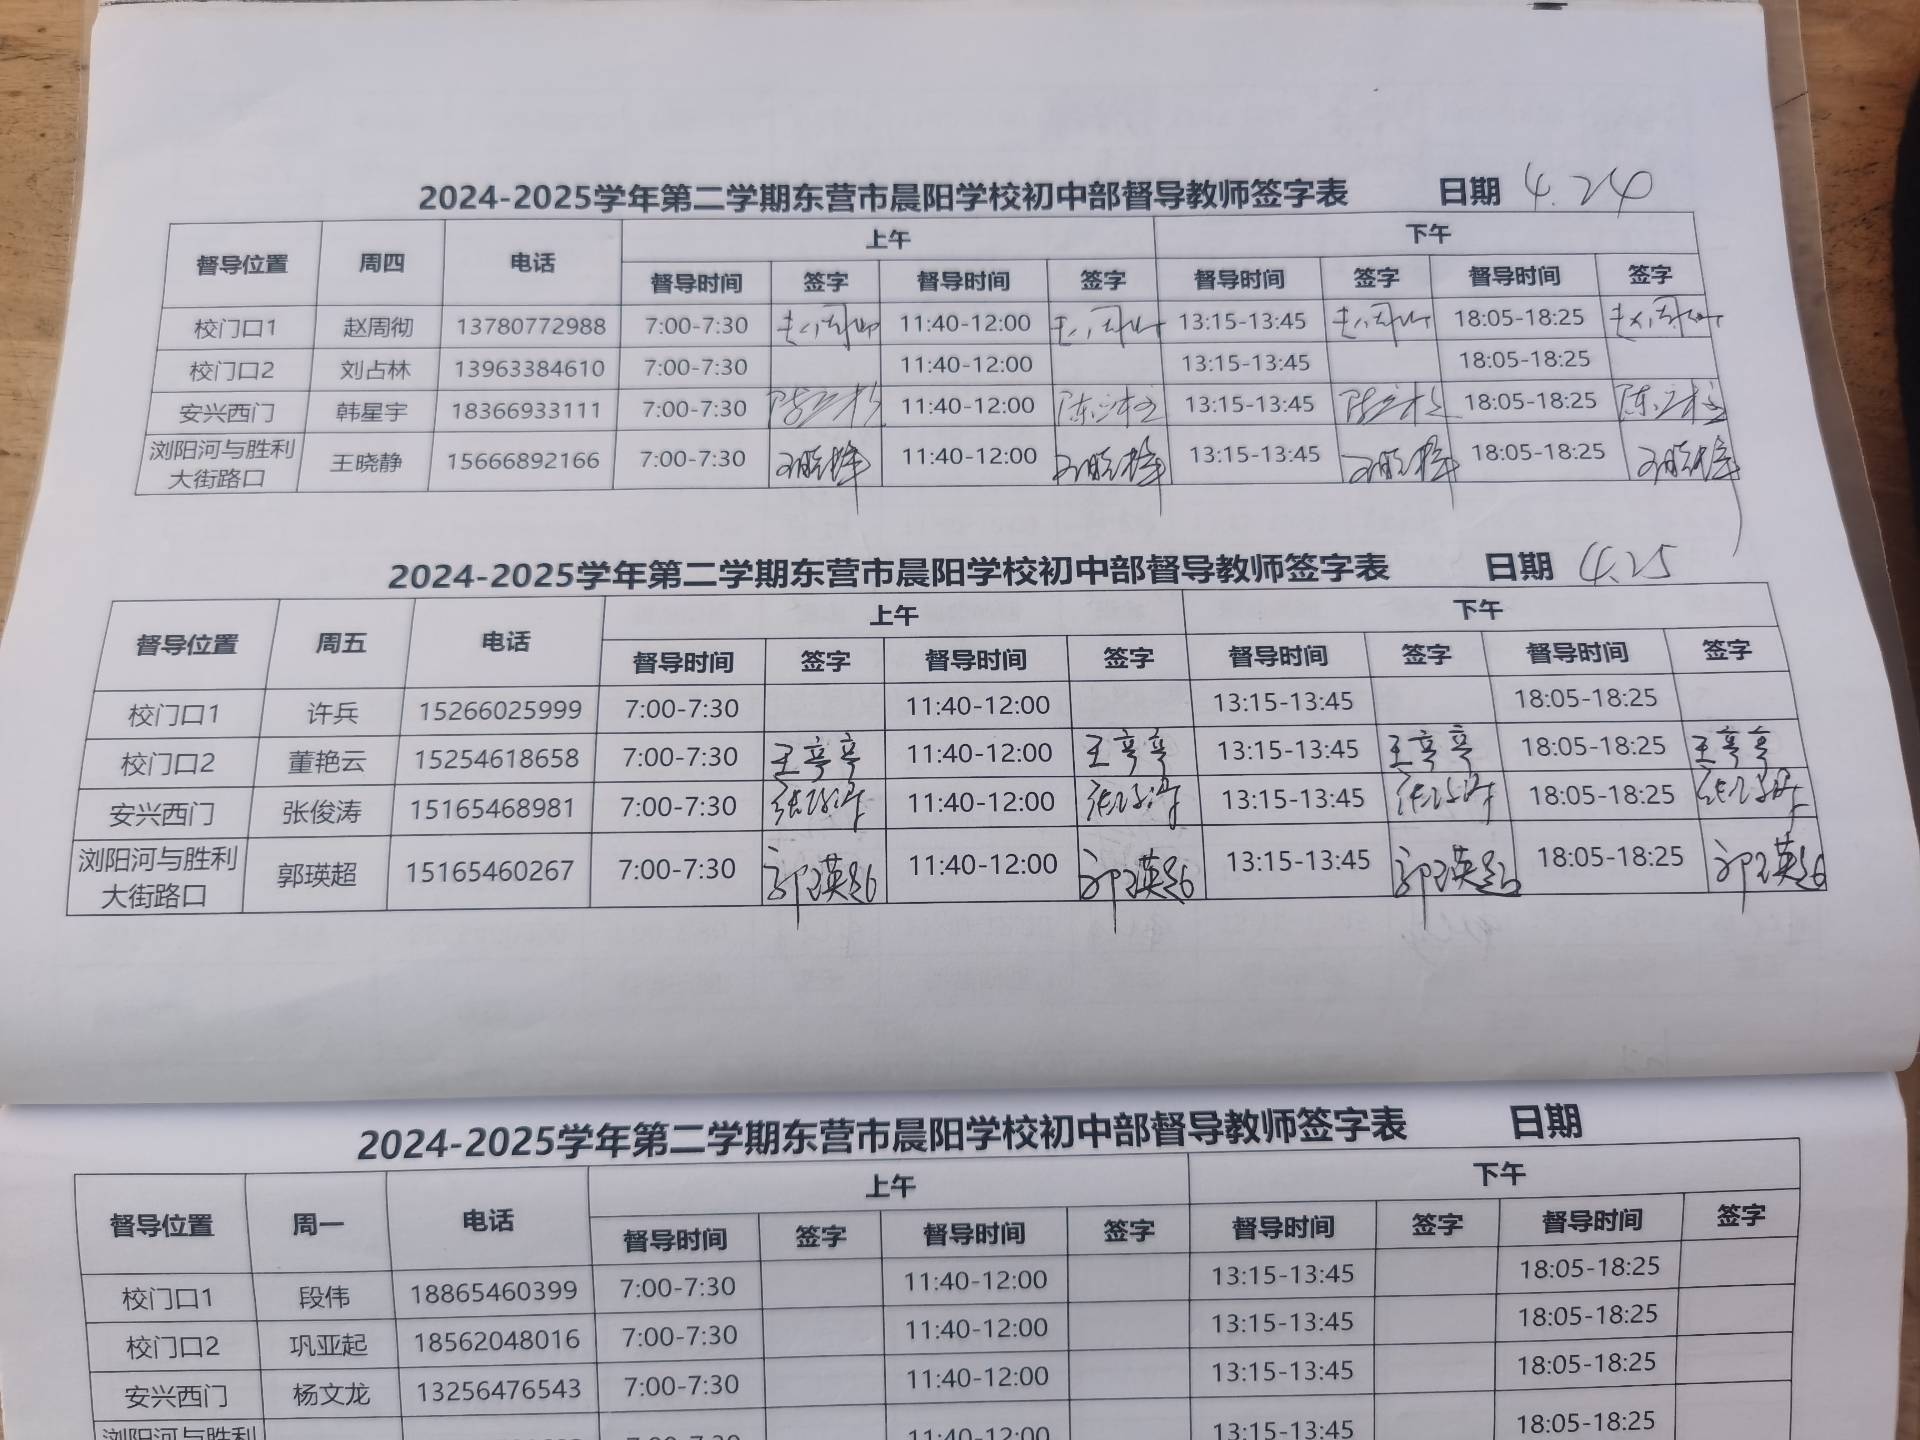 2024-2025学年第二学期东营市晨阳学校初中部督导教师签字表 日期 4.24
督导位置 周四 电话 上午 下午
督导时间 签字 督导时间 签字 督导时间 签字 督导时间 签字
校门口1 赵周彻 13780772988 7:00-7:30 11:40-12:00 13:15-13:45 18:05-18:25
校门口2 刘占林 13963384610 7:00-7:30 11:40-12:00 13:15-13:45 18:05-18:25
安兴西门 韩星宇 18366933111 7:00-7:30 11:40-12:00 13:15-13:45 18:05-18:25
浏阳河与胜利
大街路口 王晓静 15666892166 7:00-7:30 11:40-12:00 13:15-13:45 18:05-18:25
2024-2025学年第二学期东营市晨阳学校初中部督导教师签字表 日期 4.25
督导位置 周五 电话 上午 下午
督导时间 签字 督导时间 签字 督导时间 签字 督导时间 签字
校门口1 许兵 15266025999 7:00-7:30 11:40-12:00 13:15-13:45 18:05-18:25
校门口2 董艳云 15254618658 7:00-7:30 11:40-12:00 13:15-13:45 18:05-18:25
安兴西门 张俊涛 15165468981 7:00-7:30 张俊涛 11:40-12:00 张俊涛 13:15-13:45 张俊涛 18:05-18:25 张俊涛
浏阳河与胜利
大街路口 郭瑛超 15165460267 7:00-7:30 郭瑛超 11:40-12:00 郭瑛超 13:15-13:45 郭瑛超 18:05-18:25 郭瑛超
2024-2025学年第二学期东营市晨阳学校初中部督导教师签字表 日期
督导位置 周一 电话 上午 下午
督导时间 签字 督导时间 签字 督导时间 签字 督导时间 签字
校门口1 段伟 18865460399 7:00-7:30 11:40-12:00 13:15-13:45 18:05-18:25
校门口2 巩亚起 18562048016 7:00-7:30 11:40-12:00 13:15-13:45 18:05-18:25
安兴西门 杨文龙 13256476543 7:00-7:30 11:40-12:00 13:15-13:45 18:05-18:25
浏阳河与胜利 7:00-7:30 11:40-12:00 13:15-13:45 18:05-18:25